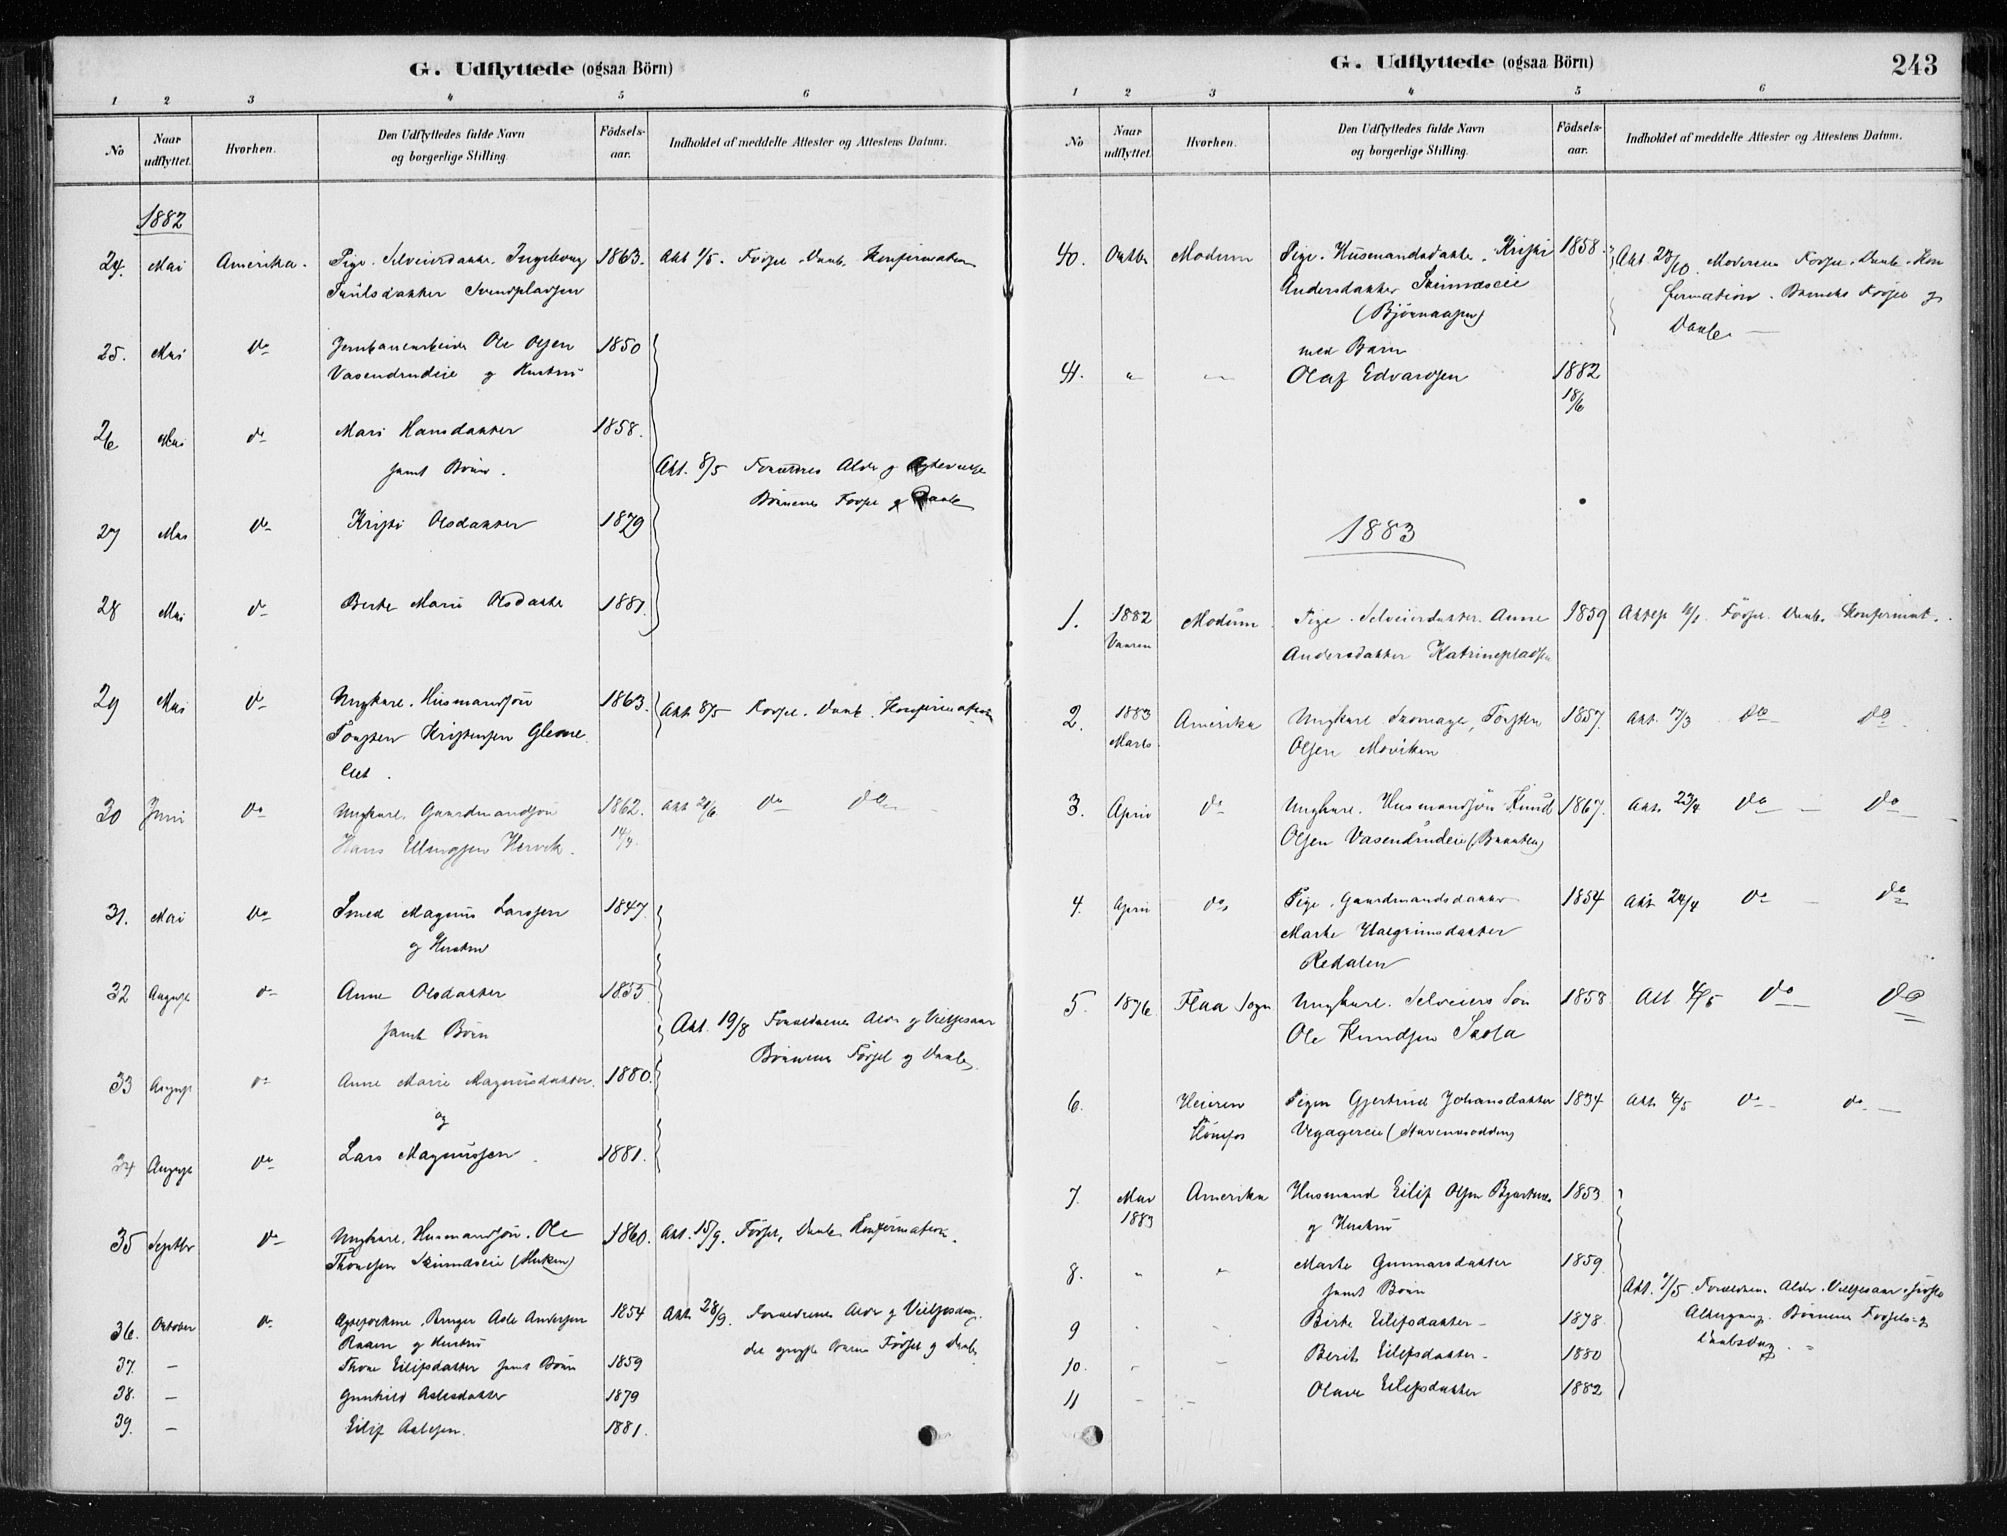 G. Udflyttede (ogsaa Börn)
1 2 3 4 5 6
No Naar udflyttet. Hvorhen. Den Udflyttedes fulde Navn og borgerlige Stilling. Födsels-aar. Indholdet af meddelte Attester og Attestens Datum.
1882
24. Mai Amerika. Pige. Selveierdatter. Ingeborg 1863. Att. 1/5. Fødsel. Daab. Konfirmation
Paulsdatter
25. Mai do Ole Olsen 1850
Vasendrudeie og Hustru
26 Mai do Mari Hansdatter 1858.
samt Børn.
Att. 8/5 Forældres Alder og
Børnenes Fødsel og Daab
27 Mai do Kristi Olsdatter 1879
28 Mai do Berte Marie Olsdatter 1881.
29 Mai do Ungkarl. Husmandssøn 1863. Att. 8/5 Fødsel. Daab. Konfirmation
Torsten Kristensen
30 Juni do Ungkarl. Gaardmandssøn 1862. Att 20/6 do do
Hans Ellingsen Hervik. 14/7.
31. Mai do Smed Magnus Larssen 1847.
og Hustru
32 August do Anne Olsdatter 1855.
samt Børn
Att. 19/8 Forældrenes Alder og Vielsesaar
Børnenes Fødsel og Daab
33 August do Anne Marie Magnusdatter. 1880.
og
34 August do Lars Magnussen 1881.
35 Septbr do Ungkarl. Husmandssøn. Ole 1860. Att. 15/9. Fødsel, Daab Konfirmation.
36. October do Bruger Asle Andersen 1854 Att. 28/9. Forældrenes Alder og Vielsesdag.
Raaen og Hustru
Børns Fødsel og Daab
37. — Thone Eilifsdatter samt Børn 1859
38. — Gunhild Aslesdatter 1879
39. — Eilif Aslesen. 1881.
G. Udflyttede (ogsaa Börn)
243
1 2 3 4 5 6
No Naar udflyttet. Hvorhen. Den Udflyttedes fulde Navn og borgerlige Stilling. Födsels-aar. Indholdet af meddelte Attester og Attestens Datum.
40. Oktbr Modum Pige. Husmandsdatter. Kristi 1858. Att. 23/10. Moderens Fødsel. Daab. Kon
Andersdatter
firmation. Barnets Fødsel og
(Bjørnaasen)
Daab —
med Barn
41. " — Olaf Edvardsen 1882
18/6
1883
1. 1882 Modum Pige. Selveierdatter. Anne 1859 Attest 4/1 Fødsel. Daab. Konfirmat.
Vaaren Andersdatter Katrinepladsen
2. 1883 Amerika Ungkarl Skomager, Torsten 1857. Att. 17/3 do do
Marts Olsen Moviken
3. April do Ungkarl. Husmandssøn Knud 1867. Att. 23/4 do — do
Olsen Vasendrudeie (Braaten)
4. April do. Pige. Gaardmandsdatter 1854 Att 24/4 do — do
Marte Halgrimsdatter
Redalen
5. 1876 Flaa Sogn Ungkarl. Selveiers Søn 1858. Att 4/5 do do
Ole Knudsen
6. Heieren Pigen Gjertrud Johansdatter 1834 Att. 4/5 do do —
Hønefos
7. Mai Amerika Husmand Eilif Olsen 1853
1883 og Hustru
8. " " Marte Gunnarsdatter 1859
samt Børn
Forældrenes Alder, Vielsesaar, sidste
9 Birte Eilifsdatter — 1878.
Altergang. Børnenes Fødsels- og
10. Berit Eilifsdatter — 1880
Daabsdag.
11 Olave Eilifsdatter 1882